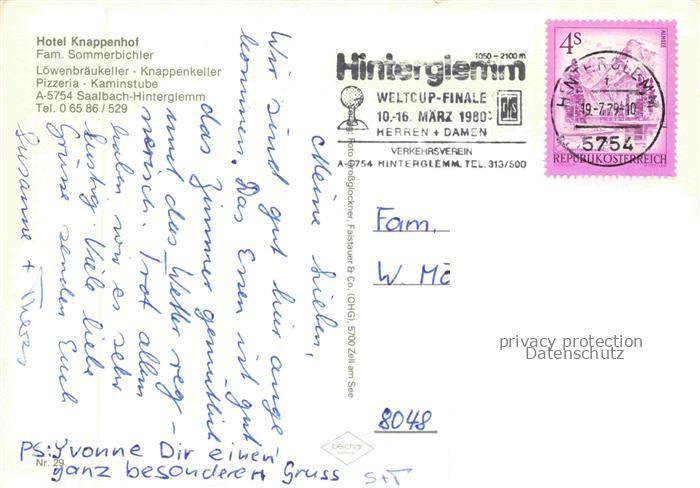 Hotel Knappenhof
Fam. Sommerbichler
Löwenbräukeller - Knappenkeller
Pizzeria - Kaminstube
A-5754 Saalbach-Hinterglemm
Tel. 0 65 86 / 529
1050 - 2100 m
Hinterglemm
WELTCUP-FINALE
10.-16. MÄRZ 1980
HERREN + DAMEN
VERKEHRSVEREIN
A-5754 HINTERGLEMM. TEL. 313/500
4S
ALMSEE
REPUBLIK ÖSTERREICH
HINTERGLEMM
1
19.-7.79-10
5754
Meine Lieben,
Wir sind gut hier ange
kommen. Das Essen ist gut
das Zimmer gemütlich
und das Wetter reg-
nerisch. Trotz allem
haben wir es sehr
lustig. Viele liebe
Grüsse senden Euch
Susanne + Theres
PS: Yvonne Dir einen
ganz besonderen Gruss
S+T
Nr. 29
Foto Großglockner, Faistauer & Co. (OHG), 5700 Zell am See
Fam.
W. Mö
8048
privacy protection
Datenschutz